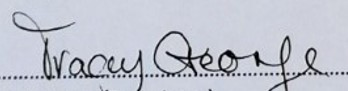 Tracey George